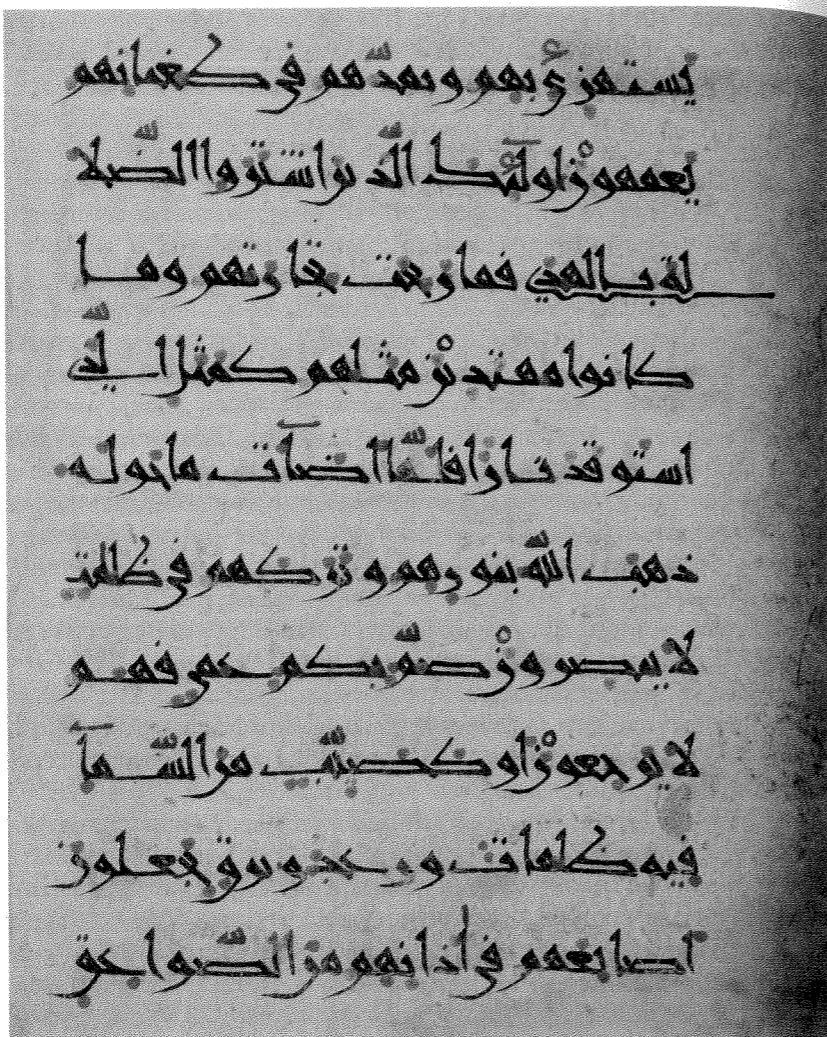 يستهزئ بهم ويمدّهم في طغيانهم
يعمهون اولٓئك الّذين اشتروا الضّلا
لة بالهدى فما ربحت تجارتهم وما
كانوا مهتدين مثلهم كمثل الّذي
استوقد نارا فلمّا اضآت ما حوله
ذهب اللّه بنورهم وتركهم في ظلمت
لا يبصرون صمّ بكم عمي فهم
لا يرجعون او كصيّب من السّمآ
فيه ظلمات ورعد وبرق يجعلون
اصابعهم في اذانهم من الصّواعق